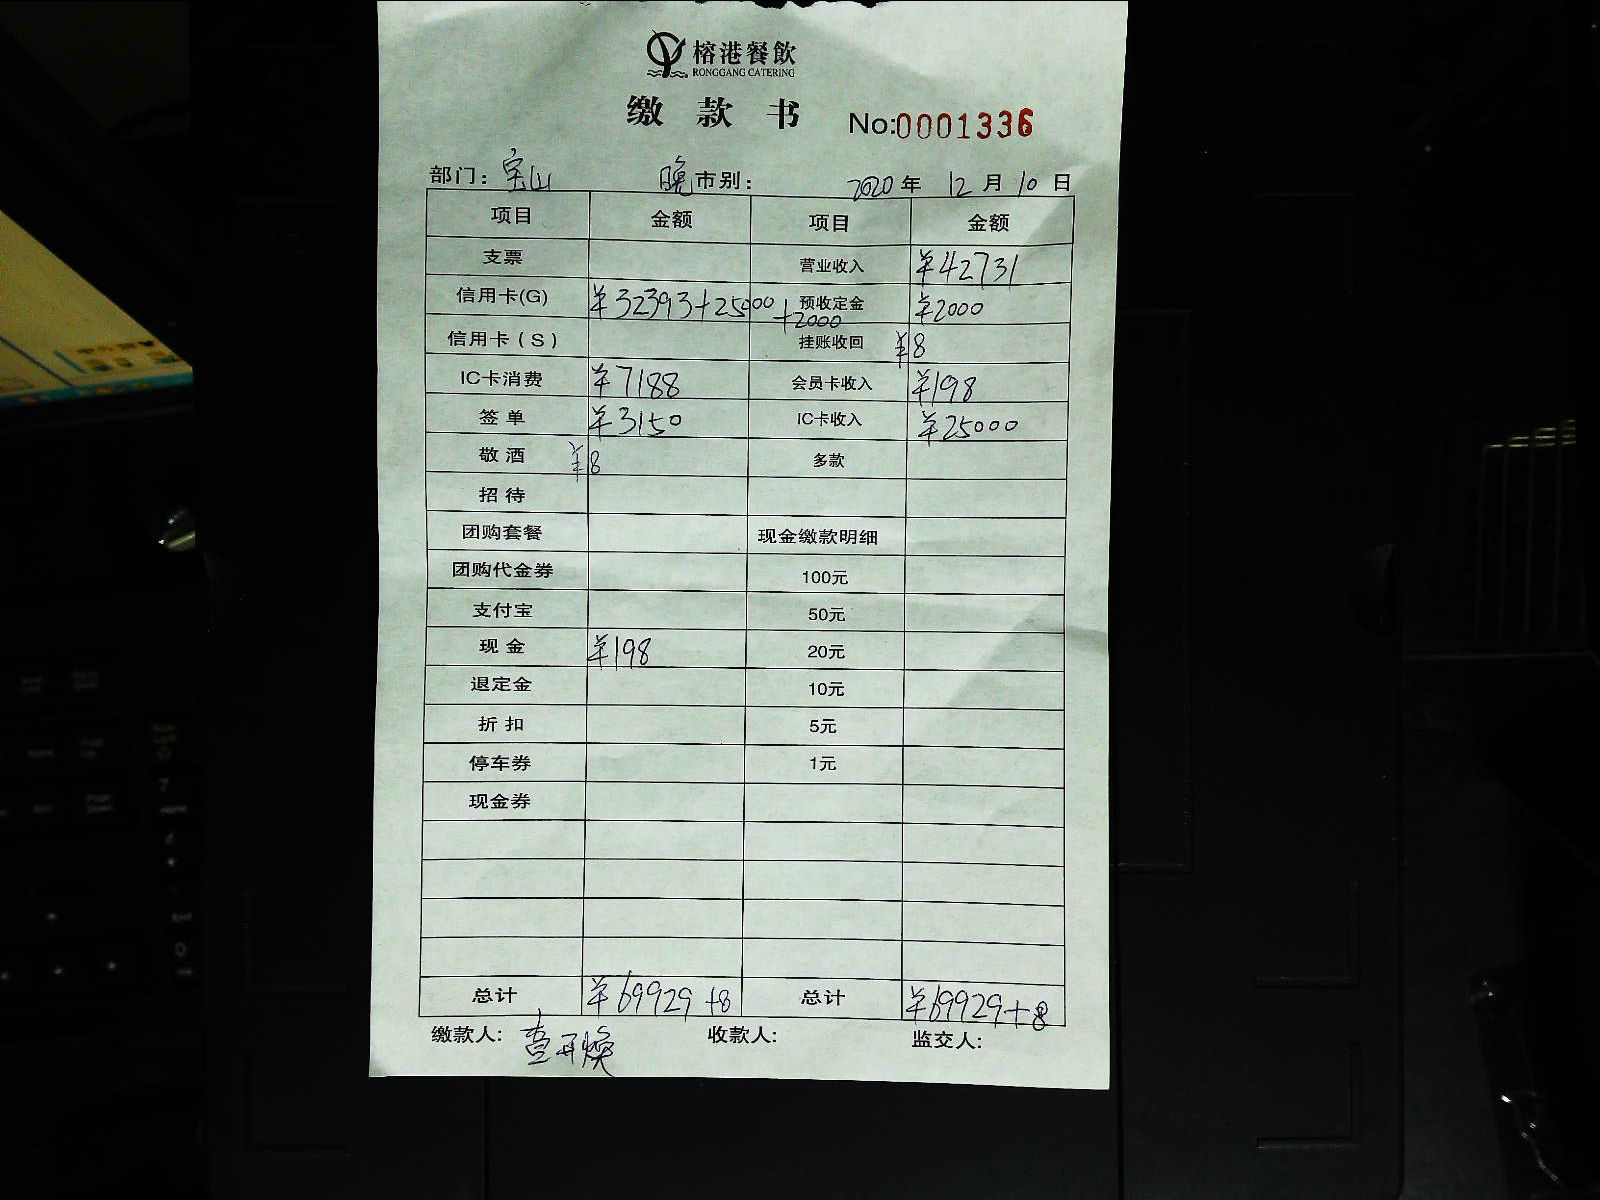 榕港餐飲
RONGGANG CATERING
缴款书 No:0001336
部门：宝山 晚市别： 2020年12月10日
项目 金额 项目 金额
支票 营业收入 ¥42731
信用卡(G) ¥32393+25000+2000 预收定金 ¥2000
信用卡(S) 挂账收回 ¥8
IC卡消费 ¥7188 会员卡收入 ¥198
签单 ¥3150 IC卡收入 ¥25000
敬酒 ¥8 多款
招待
团购套餐 现金缴款明细
团购代金券 100元
支付宝 50元
现金 ¥198 20元
退定金 10元
折扣 5元
停车券 1元
现金券
总计 ¥69929+8 总计 ¥69929+8
缴款人: 收款人: 监交人: